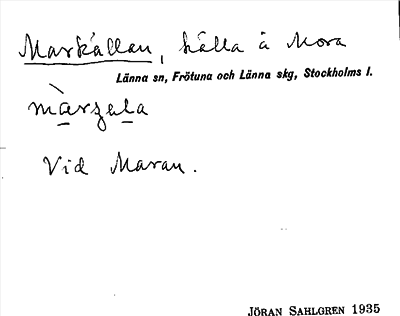 Markällan, källa å Mora
Länna sn, Frötuna och Länna skg, Stockholms l.
màrzala
Vid Maran.
JÖRAN SAHLGREN 1935